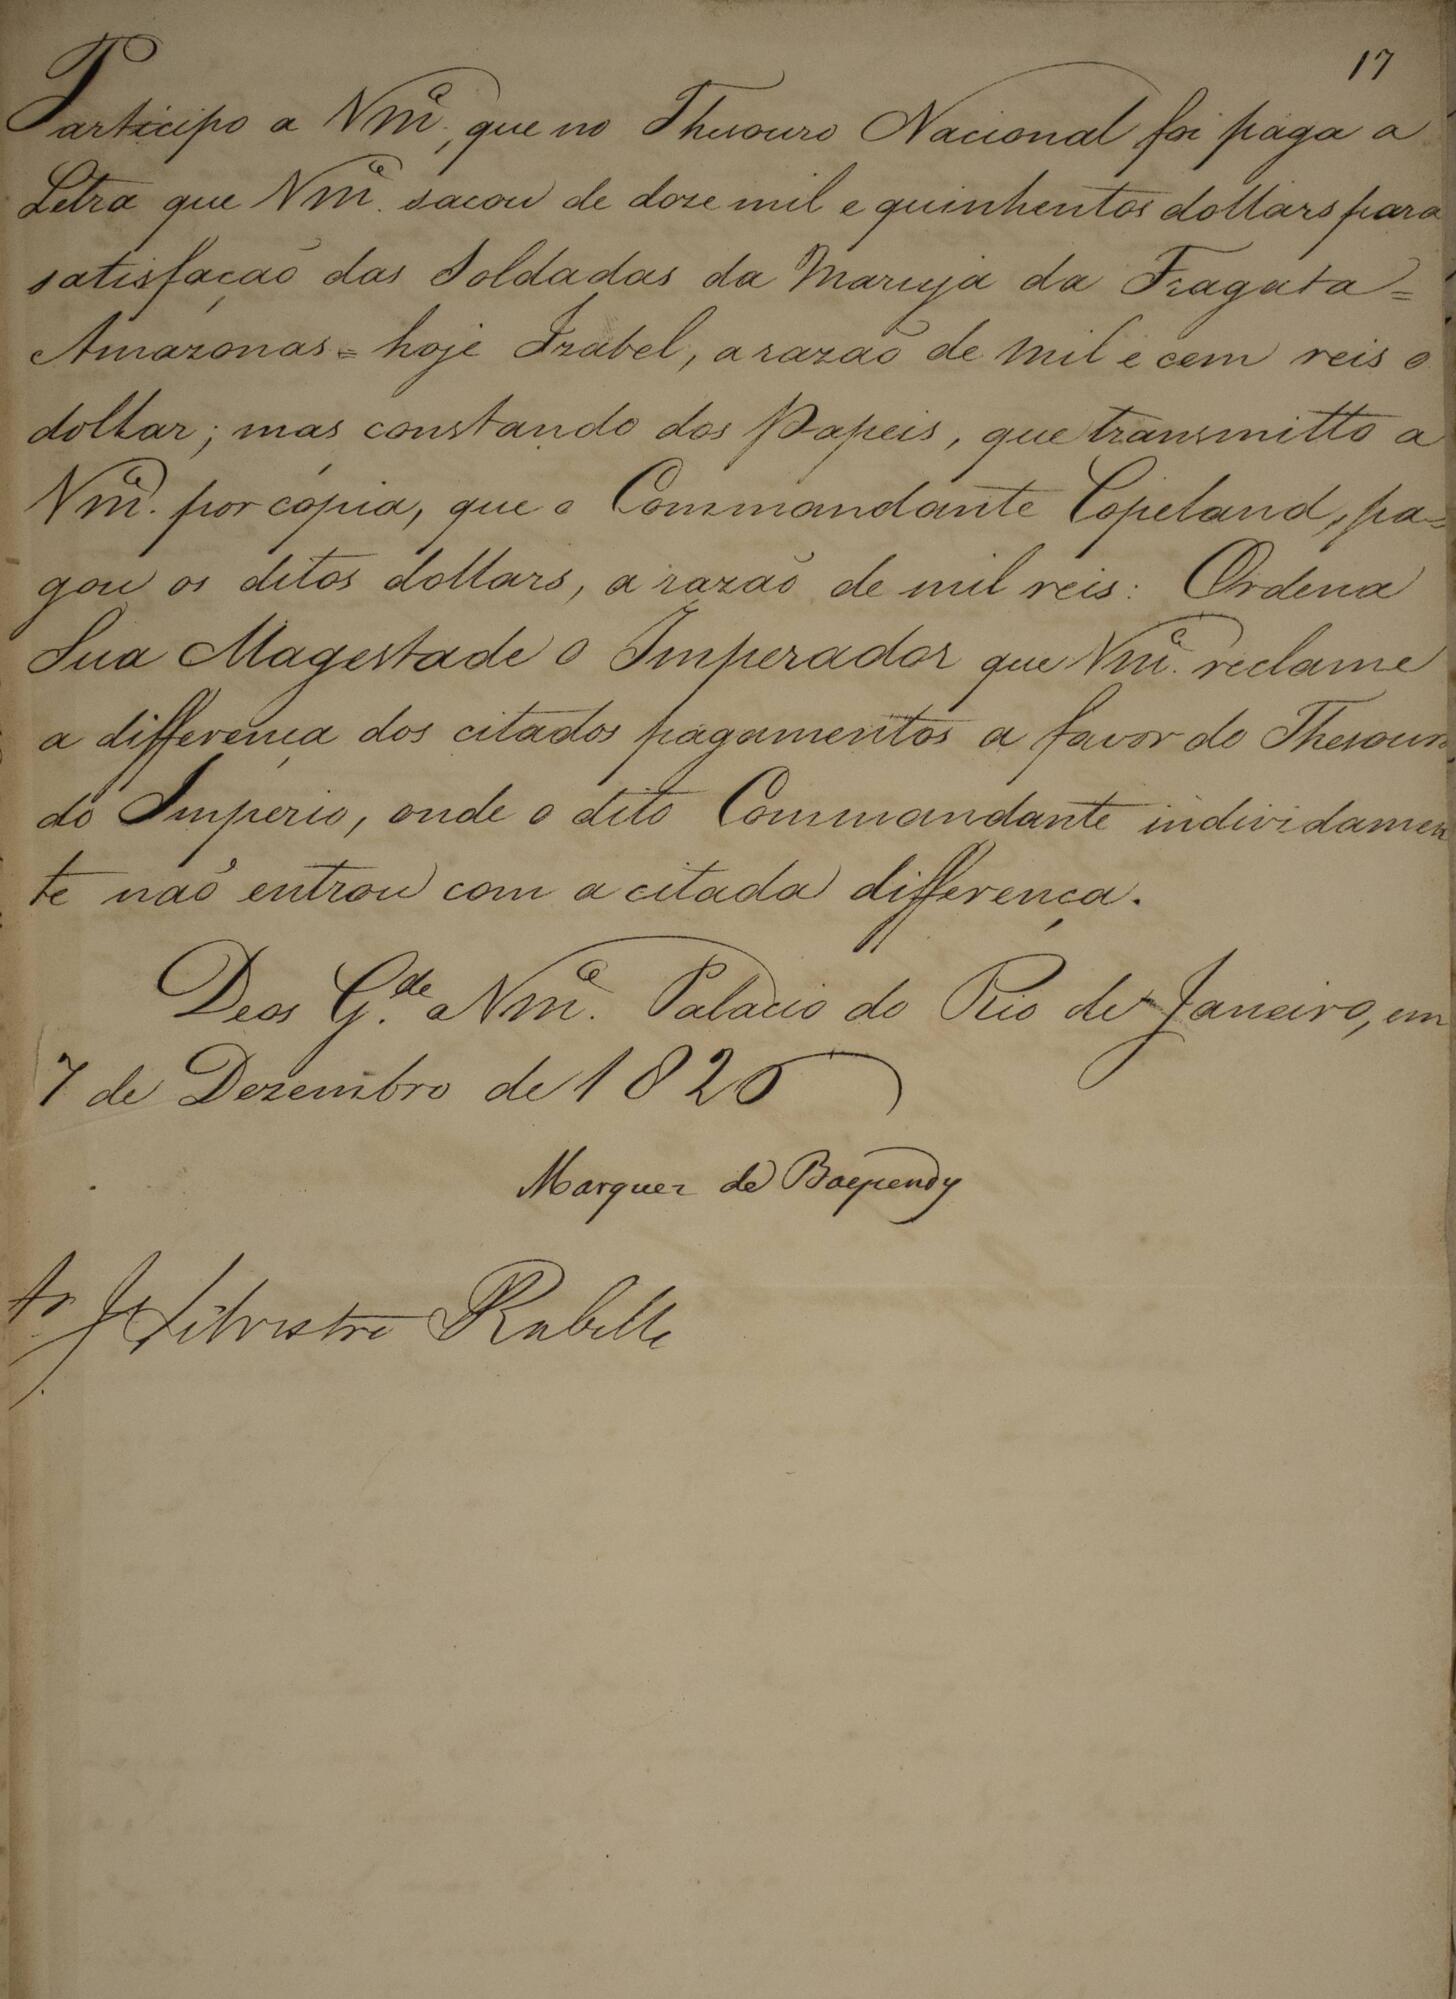 17
Participo a Vmce., que no Thesouro Nacional foi paga a
Letra que Vmce. sacou de doze mil e quinhentos dollars para
satisfação das Soldadas da Maruja da Fragata =
Amazonas = hoje Izabel, a razão de mil e cem reis o
dollar; mas constando dos Papeis, que transmitto a
Vmce. por cópia, que o Commandante Copeland, pa-
gou os ditos dollars, a razão de mil reis: Ordena
Sua Magestade o Imperador que Vmce. reclame
a differença dos citados pagamentos a favor do Thesouro
do Imperio, onde o dito Commandante individamen
te não entrou com a citada differença.
Deos G.de a Vmce. Palacio do Rio de Janeiro, em
7 de Dezembro de 1826
Marquez de Baependy
Sr. J Silvestre Rebello